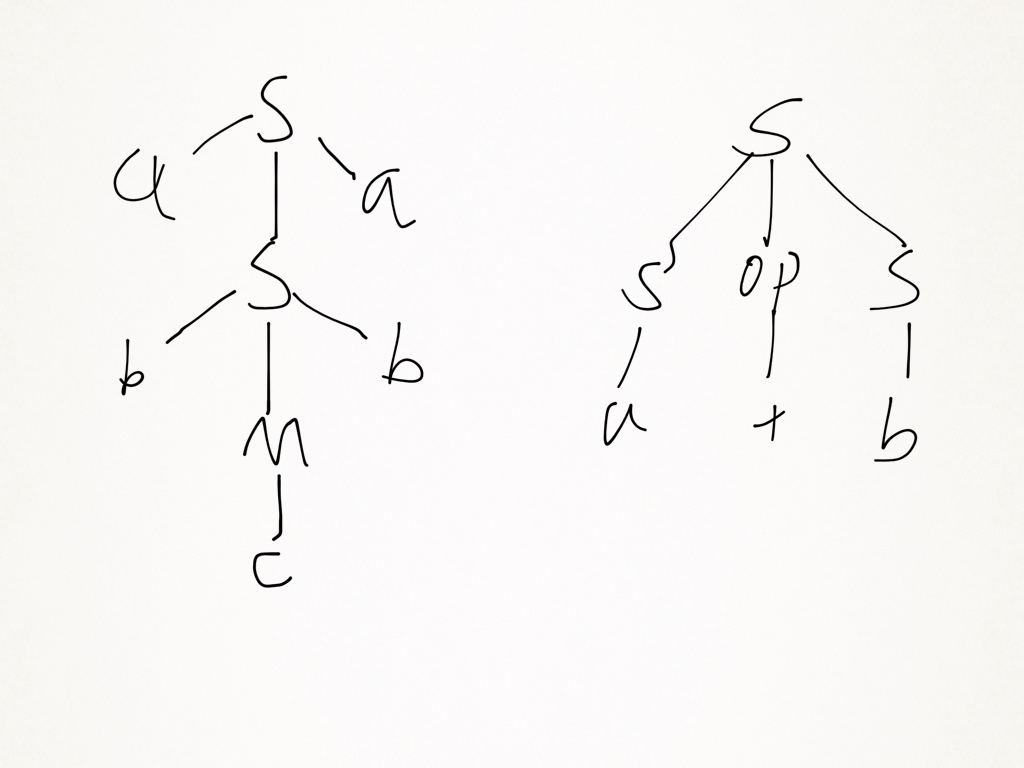 S
a a
S
b b
M
c
S
S op S
a + b